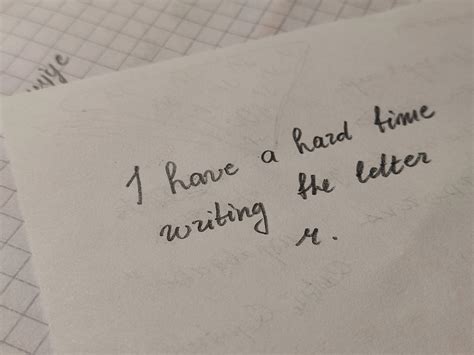 I have a hard time
writing the letter
r.